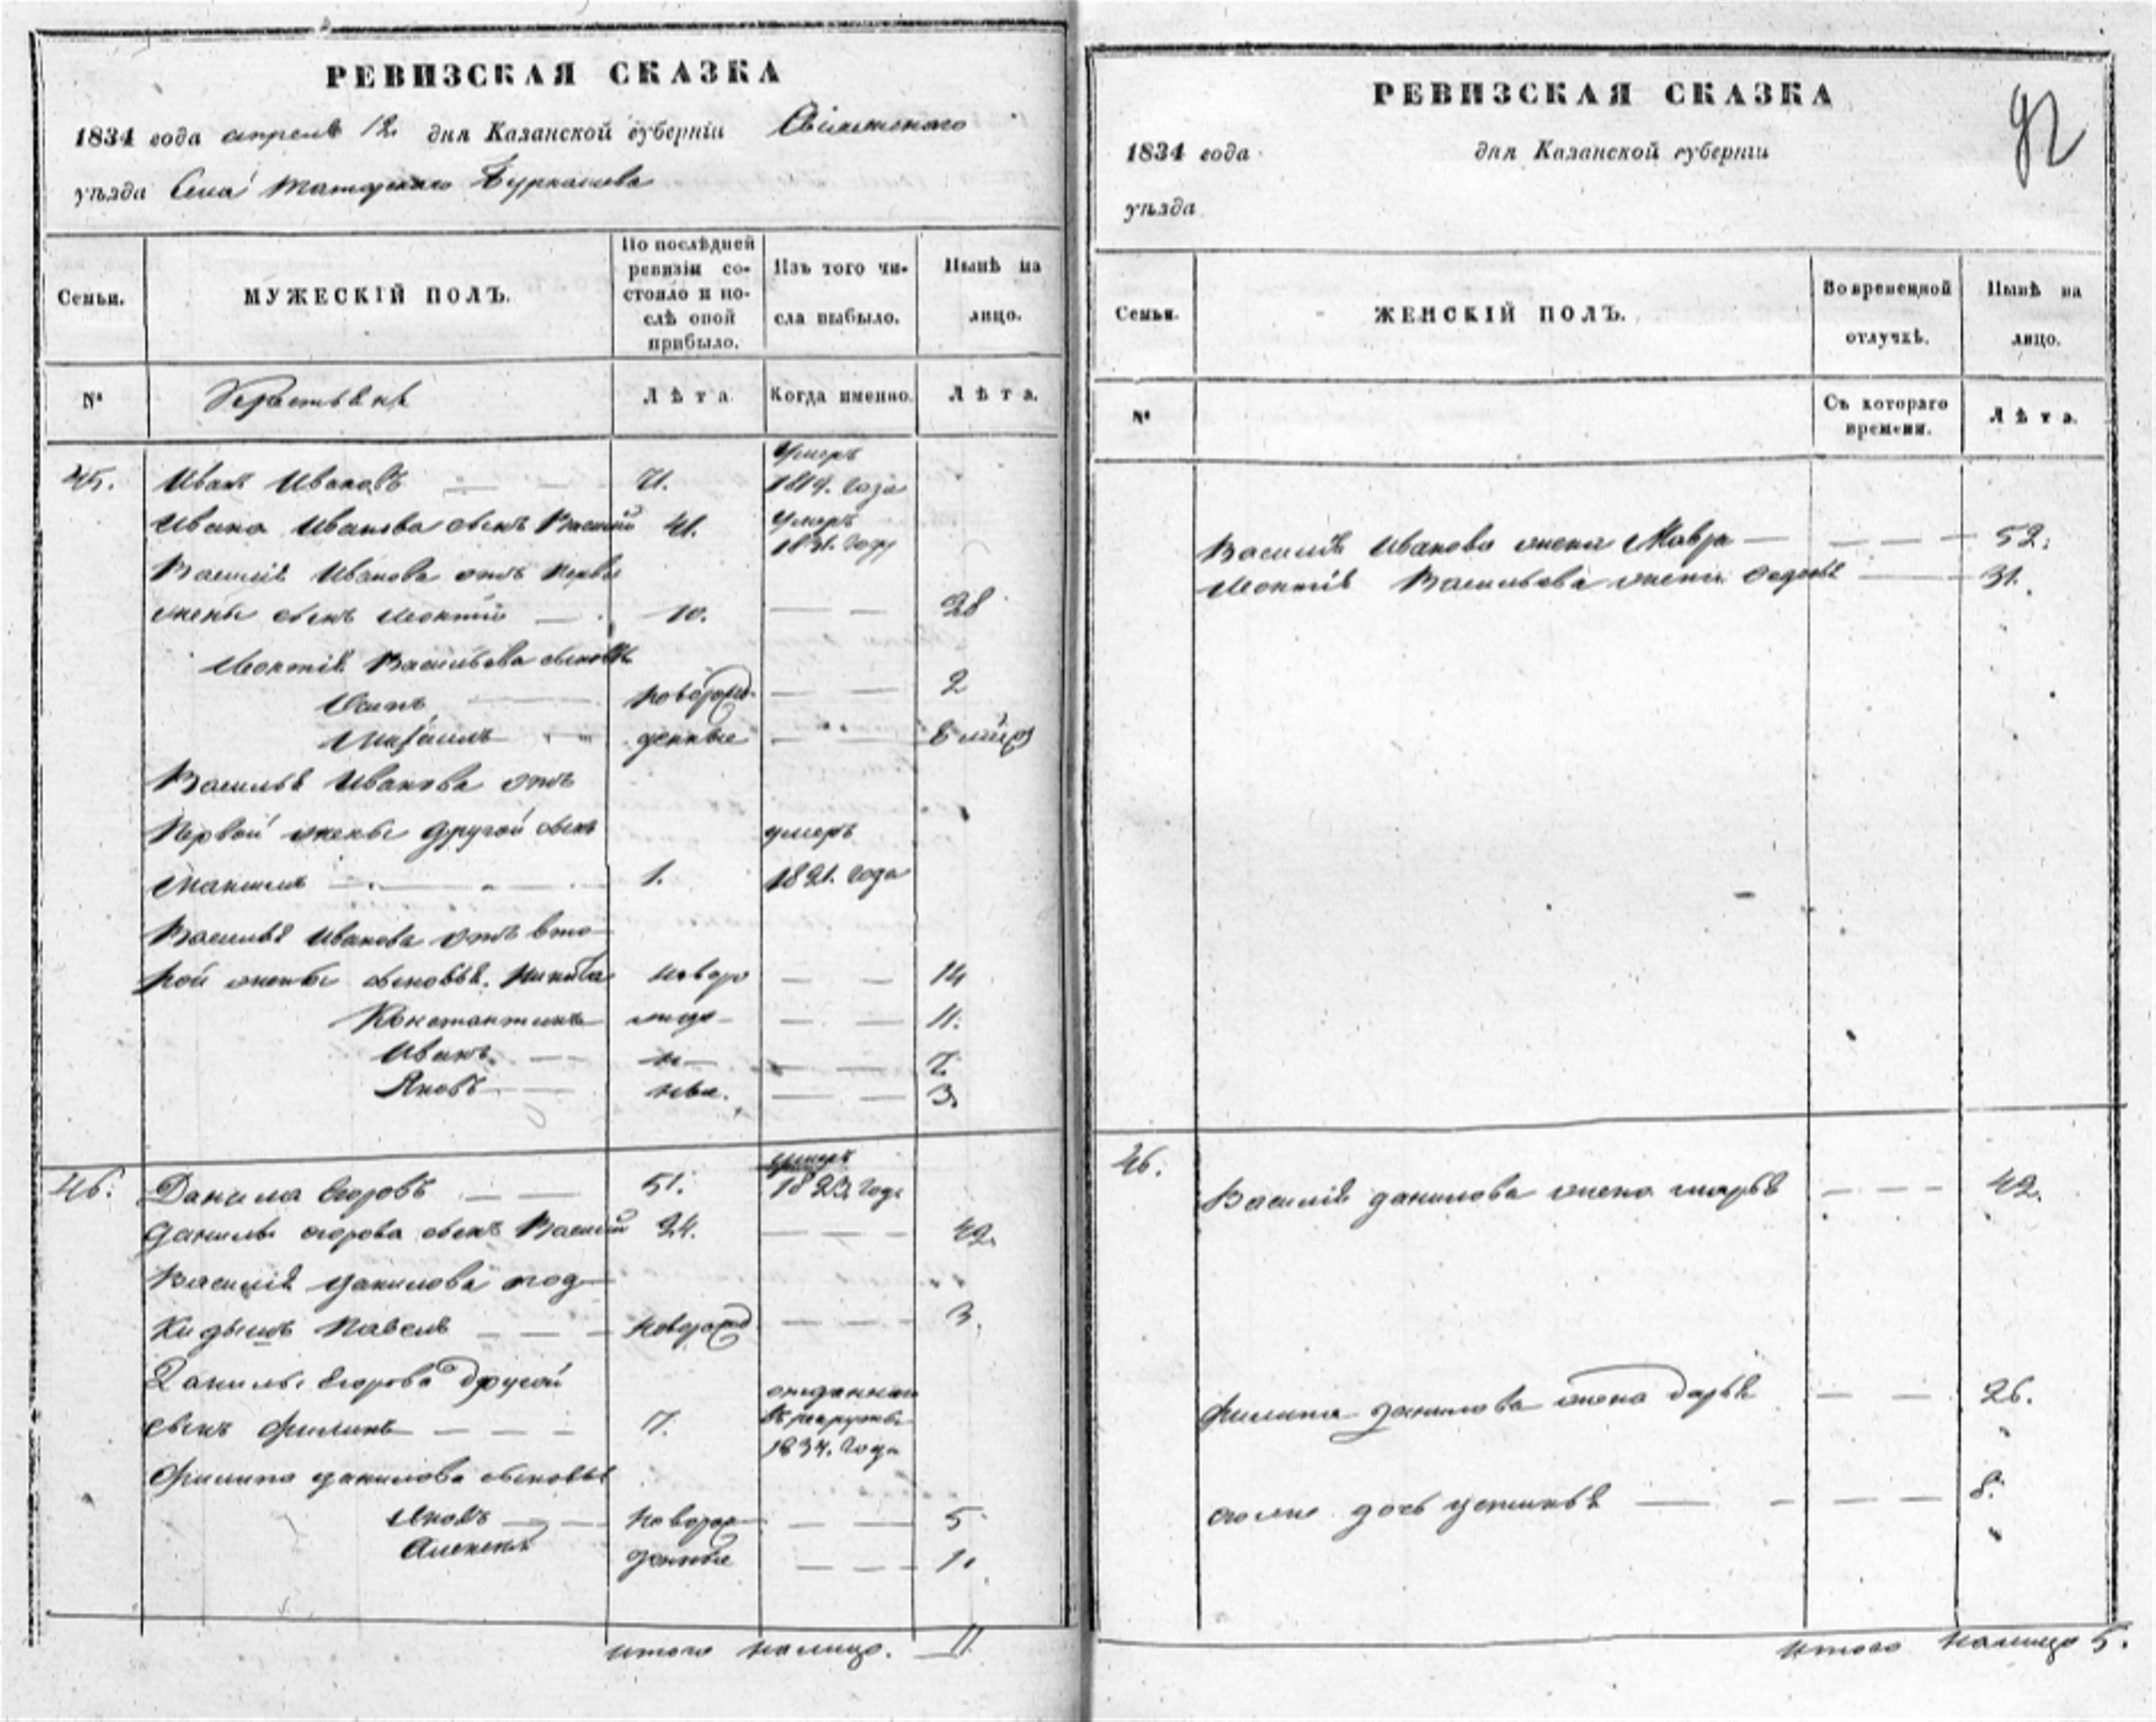 РЕВИЗСКАЯ СКАЗКА
1834 года апреля 12 дня Казанской губерніи Свіяжскаго
уѣзда Села Татарскаго Бурнашева
Семьи.
МУЖЕСКІЙ ПОЛЪ.
По послѣдней
ревизіи со-
стояло и по-
слѣ оной
прибыло.
Изъ того чи-
сла выбыло.
Нынѣ на
лицо.
№
Крестьяне
Лѣта
Когда именно.
Лѣта.
умеръ
45. Иванъ Ивановъ — — 71. 1819. года
умеръ
Ивана Иванова сынъ Василій 41. 1831. году
Василія Иванова отъ первы
жены сынъ Леонтій — 10. — — 28
Леонтія Васильева сыновья
Осипъ — новорож- — — 2
Михаилъ — денные — — 8 мѣсяц
Василья Иванова отъ
Первой жены другой сынъ умеръ
Максимъ — — — 1. 1821. года
Василья Иванова отъ вто-
рой жены сыновья. Никита новоро — — 14
Константинъ — — 11.
Иванъ — — — — 7
Яковъ — — — 3.
умеръ
46. Данила Егоровъ — — 51. 1823. года
Данилы егорова сынъ Василій 24. — — — 42.
Василія данилова под-
кидышъ Павелъ — — — новорожд — — — 3.
Данилы Егорова другой
отданъ
сынъ Филипъ — — — 17. въ рекруты
1834. года
Филипа данилова сыновья
Яковъ — — новорож- — — 5
Алексей денные — — — 1.
итого налицо. 11
РЕВИЗСКАЯ СКАЗКА
92
1834 года дня Казанской губерніи
уѣзда
Семьи.
ЖЕНСКІЙ ПОЛЪ.
Во временной
отлучкѣ.
Нынѣ на
лицо.
№
Съ котораго
времени.
Лѣта.
Василія Иванова жена Мавра — — — — 52.
Леонтія Васильева жена — — 31.
46.
Василія данилова жена марья — — — 42.
Филипа данилова жена дарья — — 26.
дочь устинья — — — — — 8.
итого налицо 5.